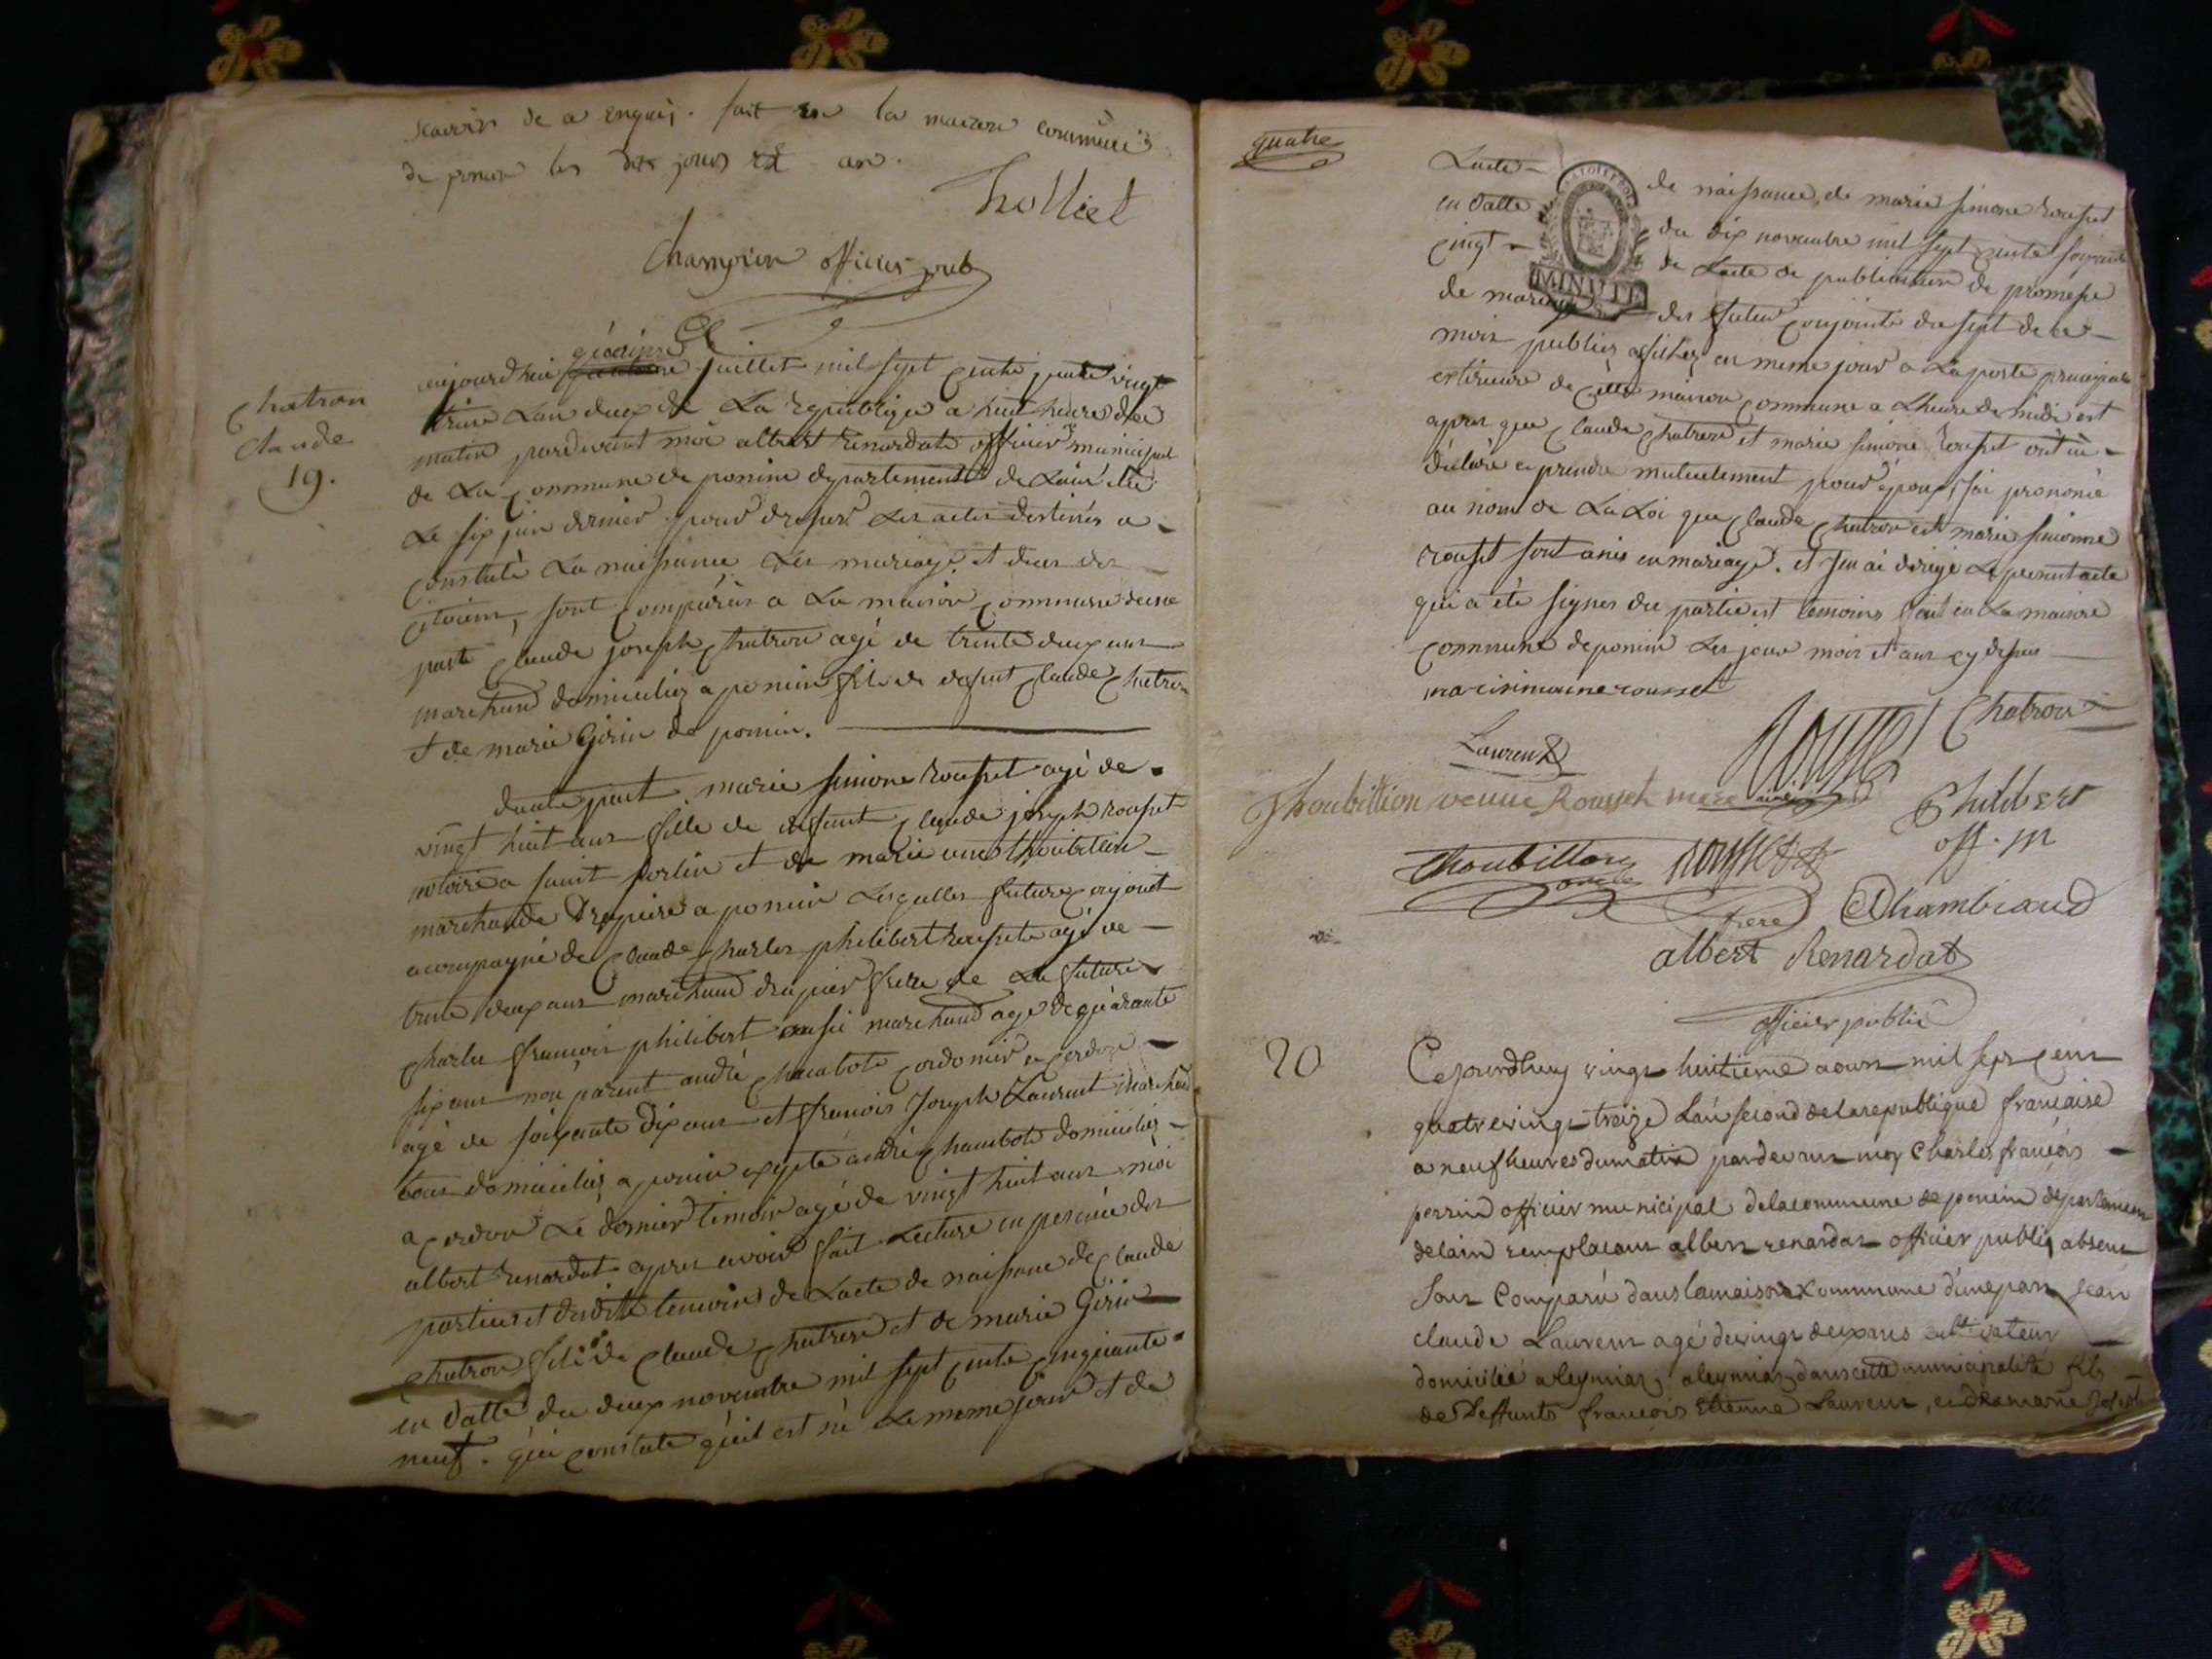 scavoir de a enquis. fait en la maison commune
de poncin les dits jours et an.
Tholliet
Champion officier pub
Chatron
Claude
19.
quinze
aujourdhui juillet mil sept cents quatre vingt
treize Lan deux de La republique a huit heures du
matin pardevant moi albert renardat officier municipal
de La commune de poncin departement de Lain élu
Le six juin dernier pour dresser Les actes destinés a
constaté La naissance Les mariage et deces des
citoiens, sont comparus a La maison commune dune
part claude joseph chatron agé de trente deux ans
marchand domiciliez a poncin fils de defunt claude chatron
et de marie Girin de poncin.
dautre part marie simone rousset agé de
vingt huit ans fille de defunt claude joseph rousset
notoire a saint sorlin et de marie thoubillon
marchande drapiere a poncin Lesquelles future conjoint
acompagné de claude charles philibert rousset agé de
trente deux ans marchand drapier frere de La future
charles francois philibert aussi marchand agé de quarante
six ans non parent andré chambote cordonier a cerdon
agé de soixante dix ans et francois joseph Laurent marchand
tous domiciliez a poncin excepté andré chambote domiciliez
a cerdon Le dernier temoin agé de vingt huit ans moi
albert renardat apres avoir fait Lecture en presence des
parties et desdits temoins de Lacte de naissance de claude
chatron fils de claude chatron et de marie Girin
en datte du deux novembre mil sept cents cinquante
neuf. qui constate quil est né Le meme jour et de
quatre
Lacte de naissance de marie simone rousset
en datte du dix novembre mil sept cents soixante
cinq de Lacte de publication de promesse
MINUTE
de mariage des futur conjoints du sept de ce
mois publiez afichez en meme jour a La porte principale
exterieure de cette maison commune a Lheure de midi et
apres que claude chatron et marie simone rousset ont
declaré prendre mutuelement pour epoux, jai prononcé
au nom de La Loi que claude chatron et marie simonne
rousset sont unis en mariage. et jen ai dirigé Le present acte
qui a été signez des parties et temoins fait en La maison
commune de poncin Les jour mois et ans cy dessus
marisimonne rousset
Chatron
Laurent
Rousset
Thoubillion veuve Rousset mere
Philibert
off. m
Thoubillon oncle
rousset
frere
Chambiaud
albert Renardat
officier public
20
Cejourdhuy vingt huitieme aoust mil sept cent
quatrevingt treize Lan second delarepublique francaise
a neuf heures dumatin pardevant moy Charles francois
perrin officier municipal delacommune de poncin departement
delain remplacant albert renardat officier public absent
sont Comparu dans lamaison commune dunepart Jean
claude Laurent agé devingt deux ans cultivateur
domicilié aleymiaz, aleymiaz danscette municipalité fils
de deffunts francois etienne Laurent, et demarie